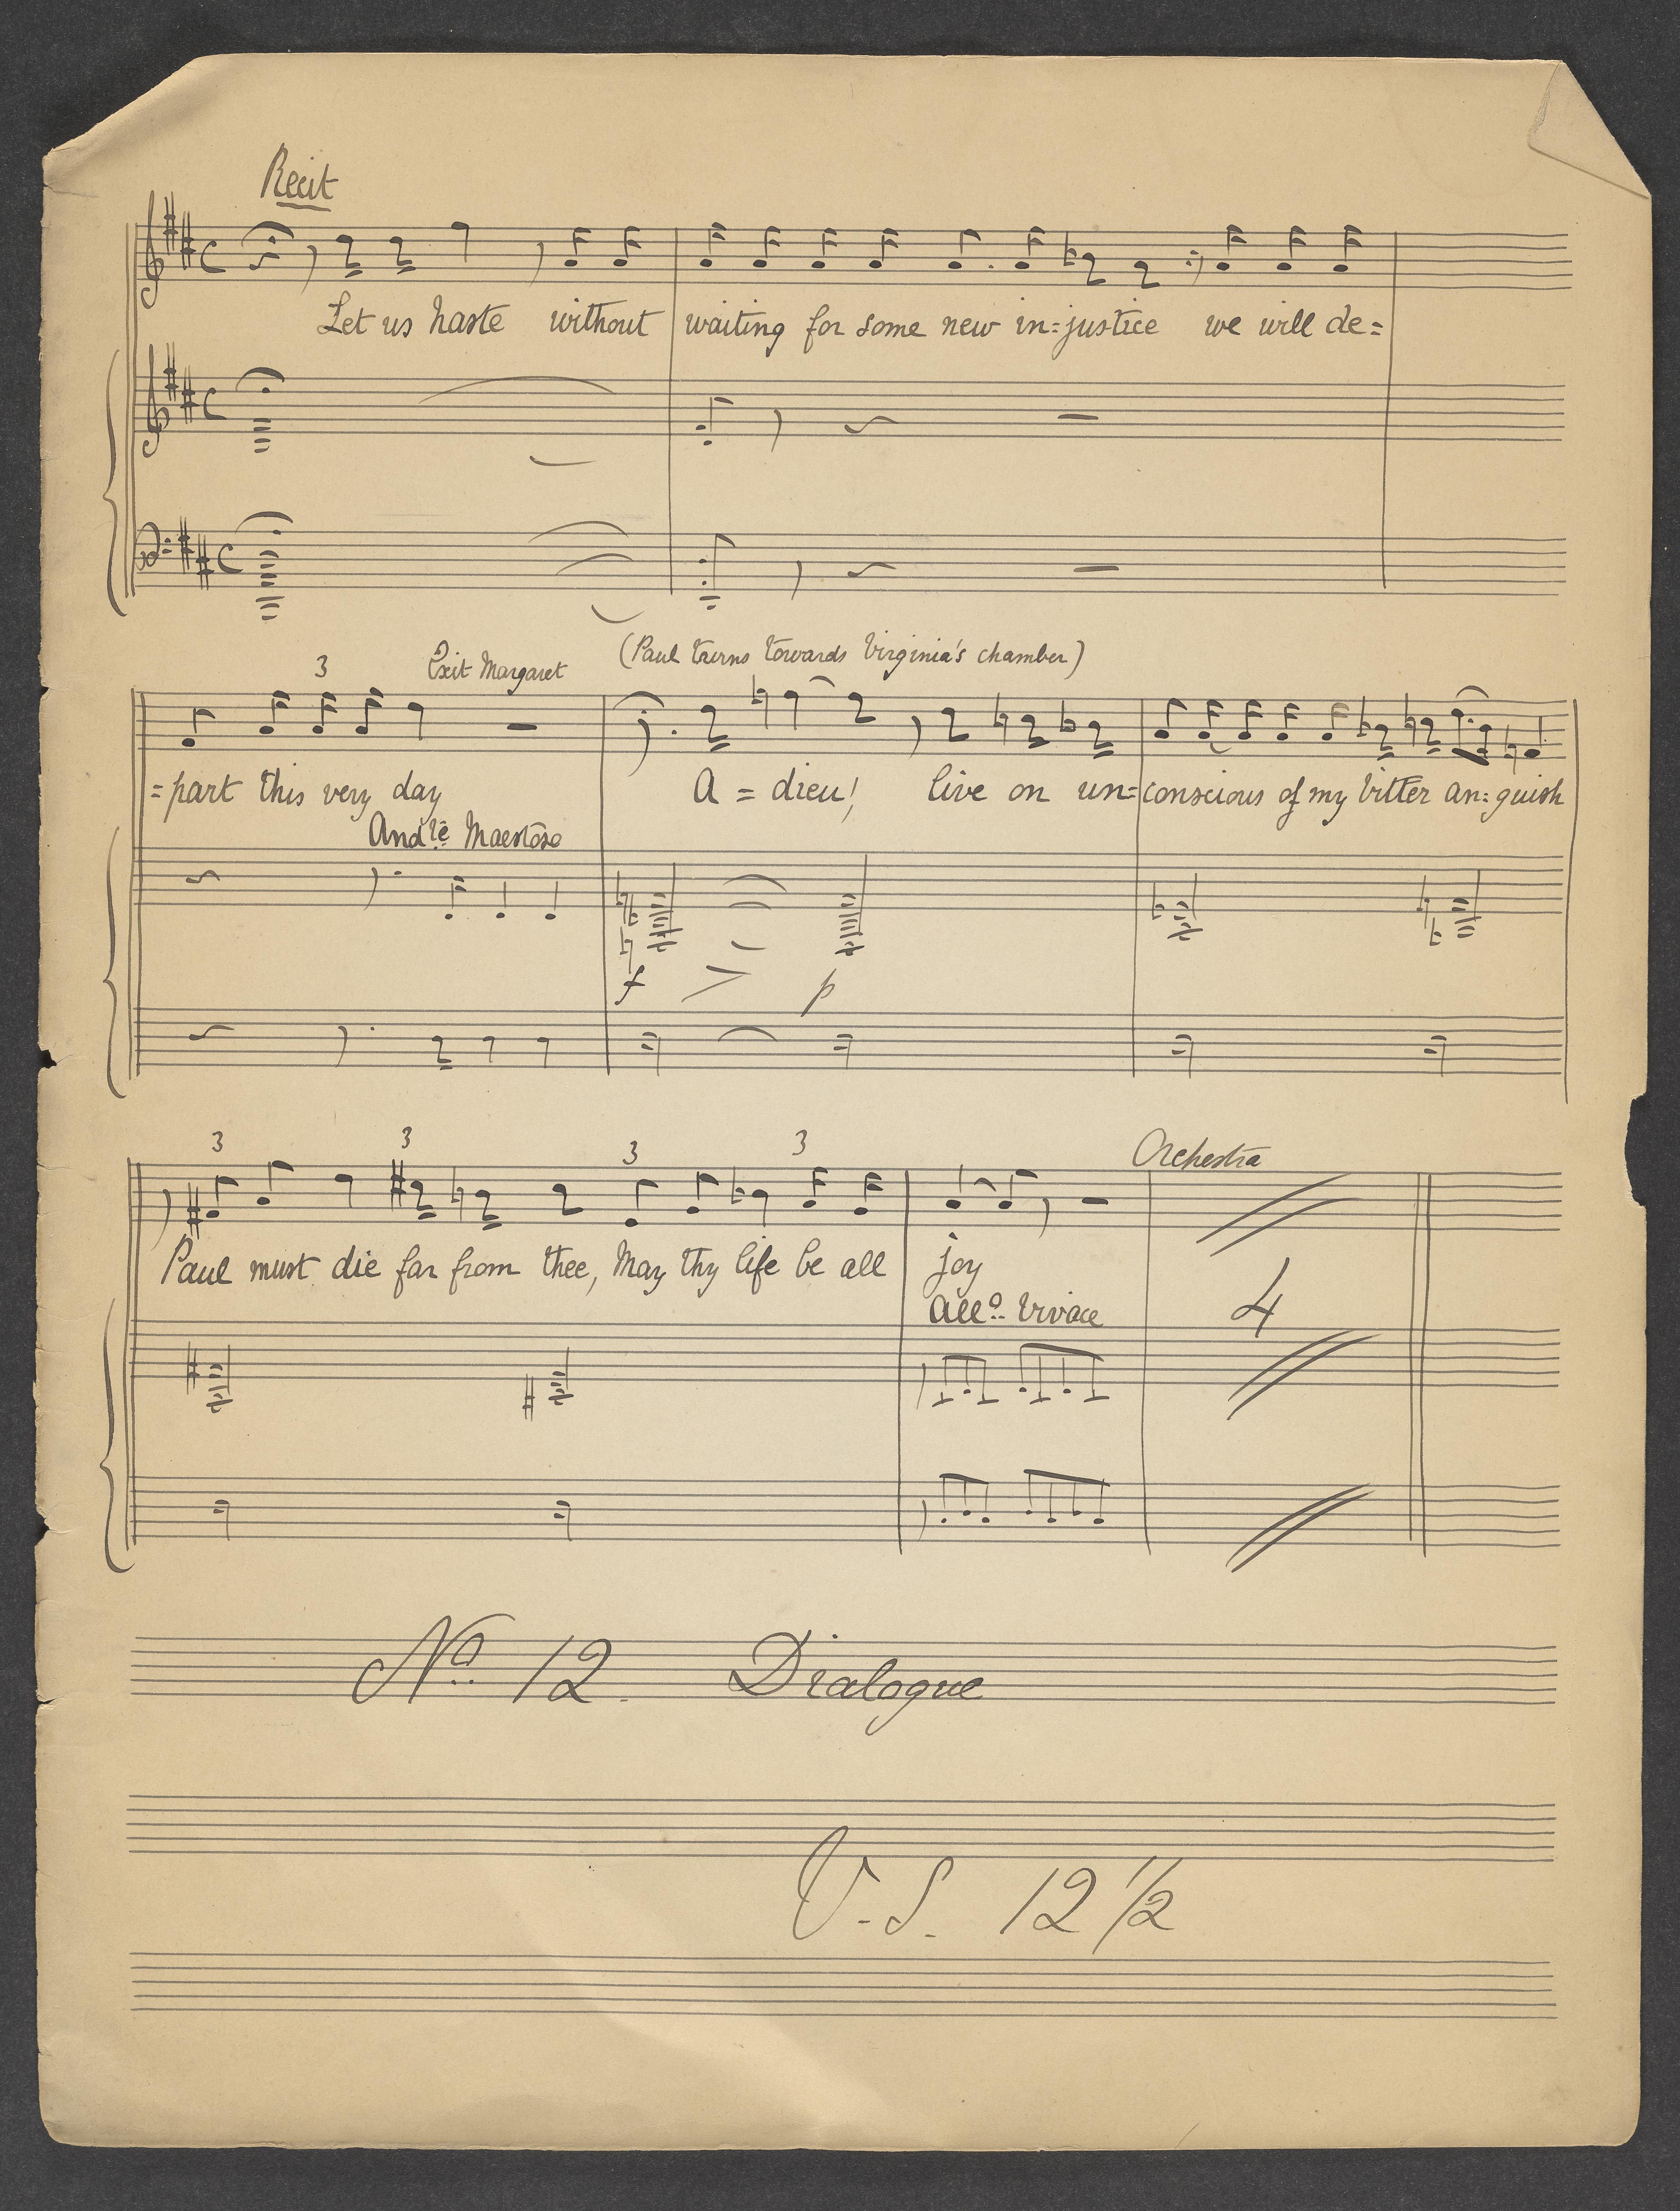 Recit
Let us haste without waiting for some new in=justice we will de=
3 Exit Margaret (Paul turns towards Virginia's chamber)
=part this very day A = dieu! live on un=conscious of my bitter an=guish
And.te Maestoso
f > p
3 3 3 3 Orchestra
Paul must die far from thee, May thy life be all joy
All.o Vivace 4
No. 12. Dialogue
V.S. 12 1/2